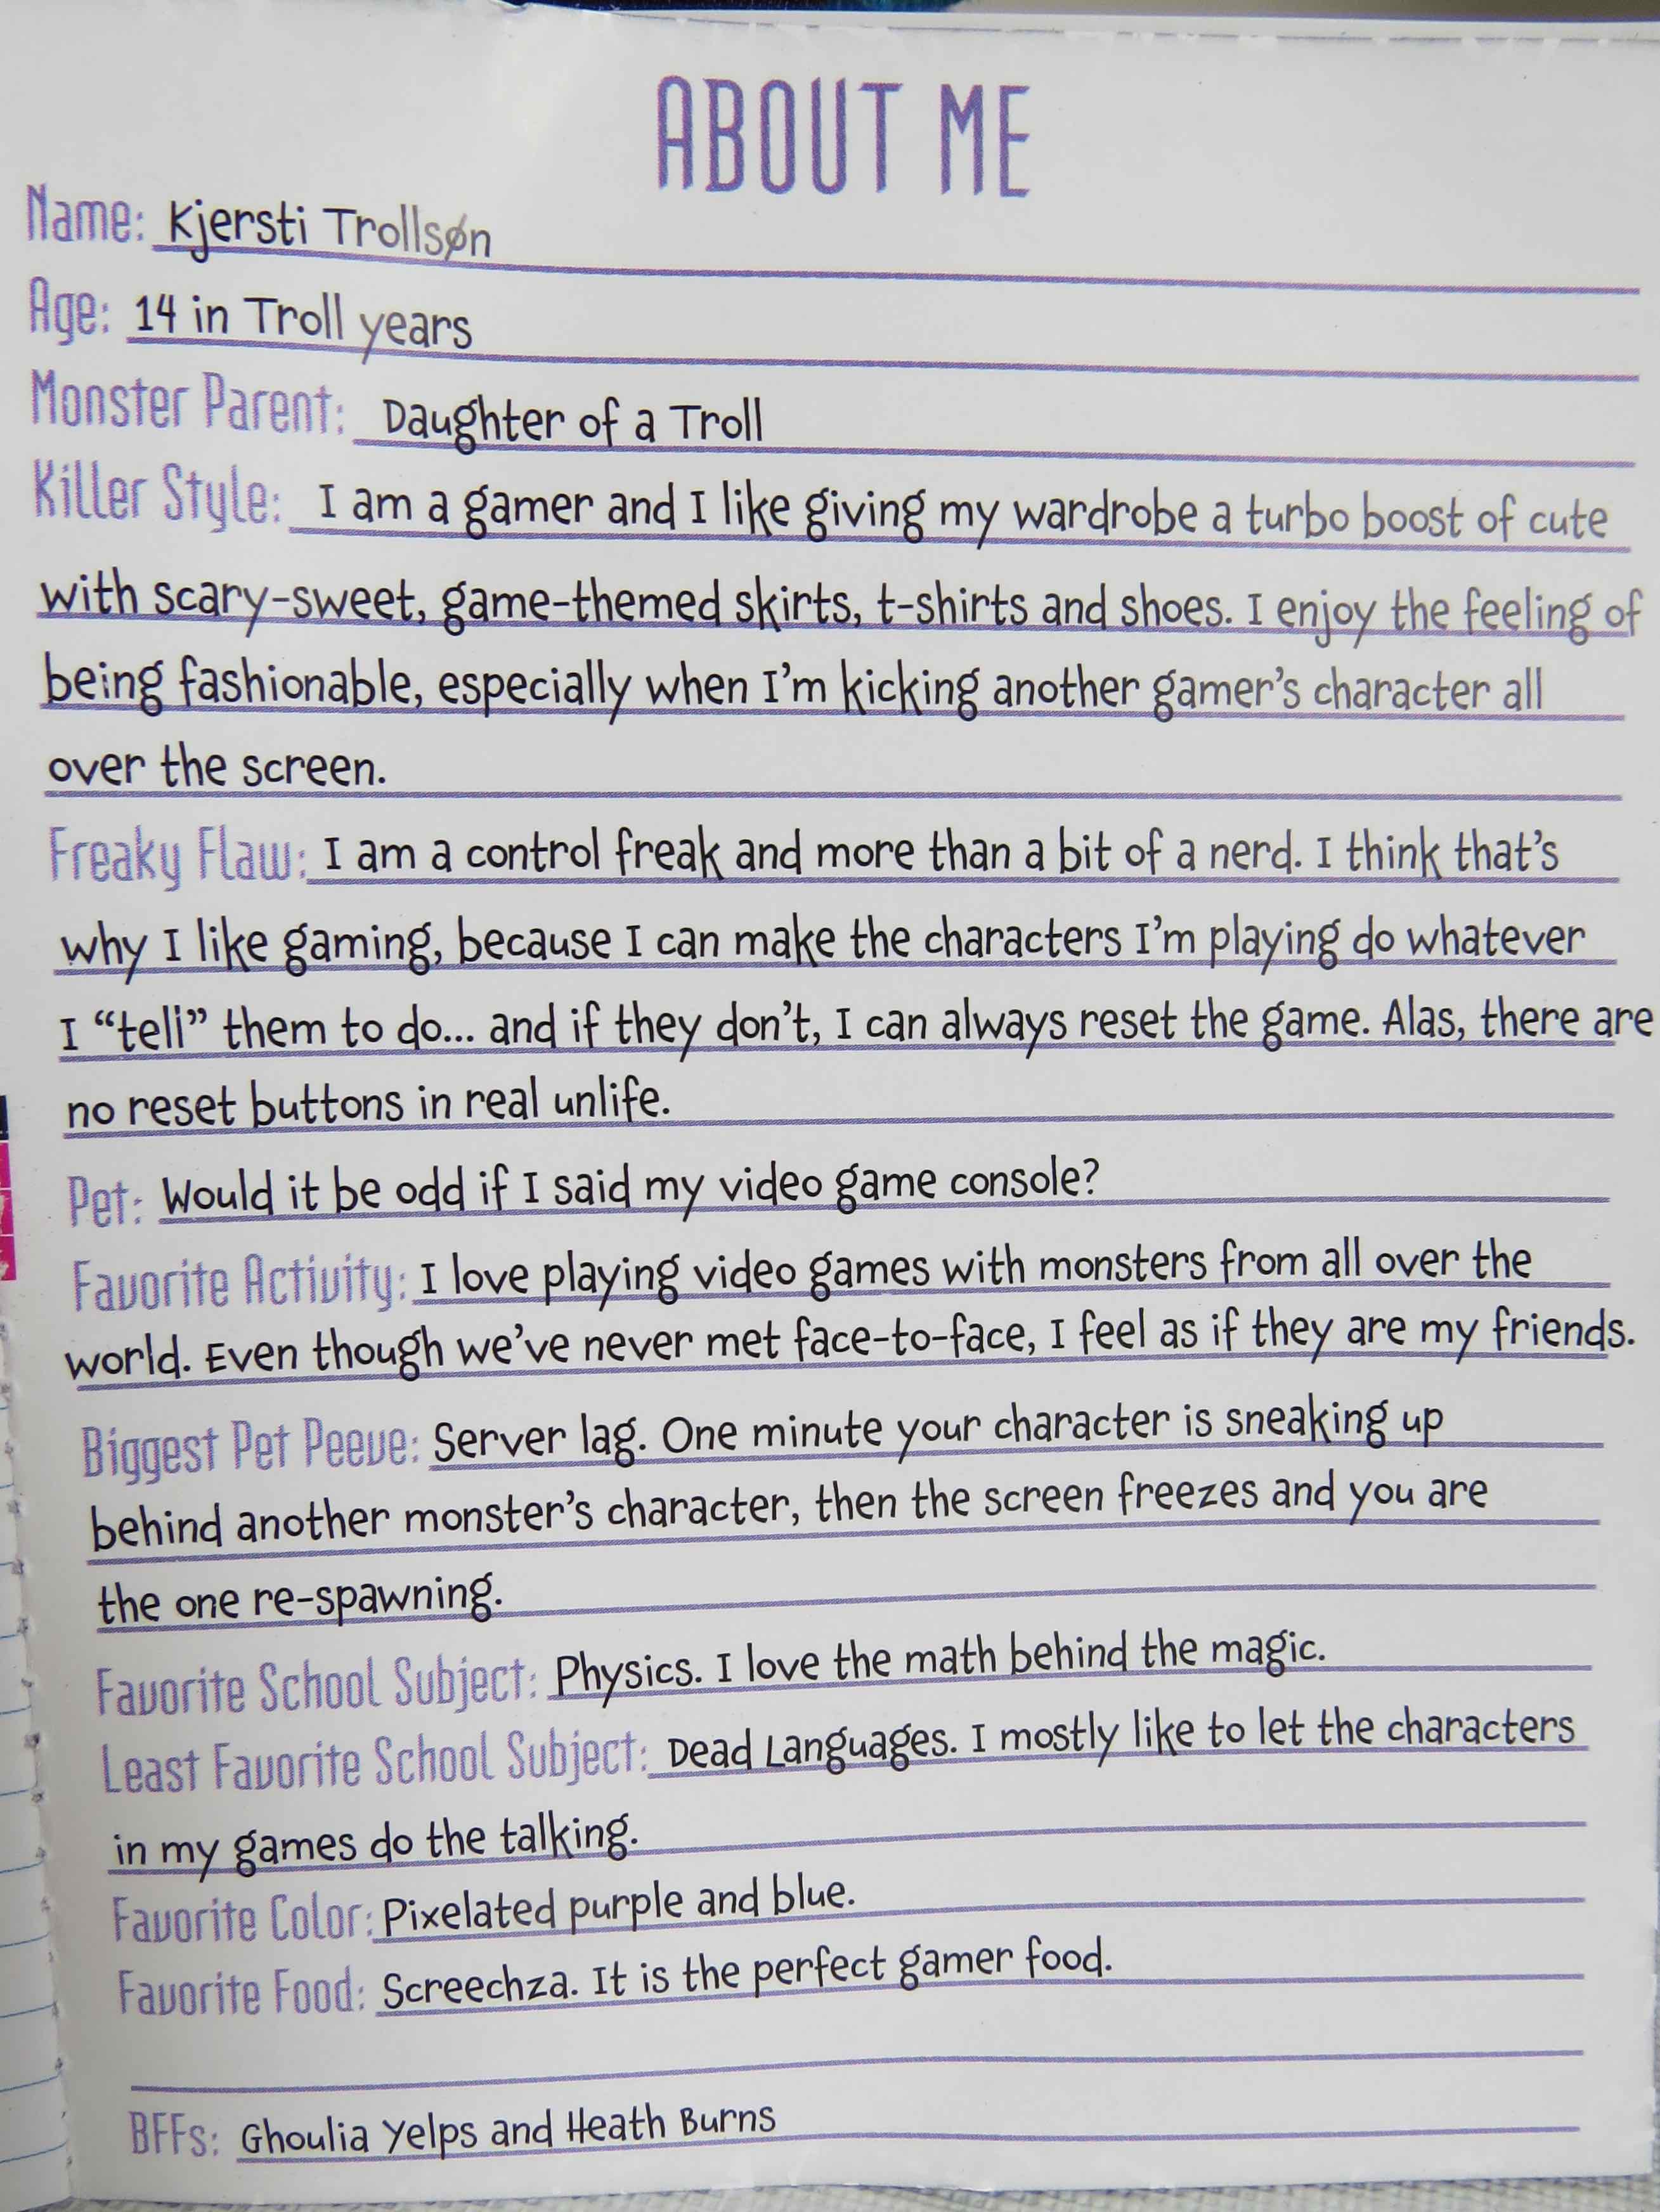 ABOUT ME
Name: Kjersti Trollsøn
Age: 14 in Troll years
Monster Parent: Daughter of a Troll
Killer Style: I am a gamer and I like giving my wardrobe a turbo boost of cute
with scary-sweet, game-themed skirts, t-shirts and shoes. I enjoy the feeling of
being fashionable, especially when I'm kicking another gamer's character all
over the screen.
Freaky Flaw: I am a control freak and more than a bit of a nerd. I think that's
why I like gaming, because I can make the characters I'm playing do whatever
I “tell” them to do... and if they don't, I can always reset the game. Alas, there are
no reset buttons in real unlife.
Pet: Would it be odd if I said my video game console?
Favorite Activity: I love playing video games with monsters from all over the
world. Even though we've never met face-to-face, I feel as if they are my friends.
Biggest Pet Peeve: Server lag. One minute your character is sneaking up
behind another monster's character, then the screen freezes and you are
the one re-spawning.
Favorite School Subject: Physics. I love the math behind the magic.
Least Favorite School Subject: Dead Languages. I mostly like to let the characters
in my games do the talking.
Favorite Color: Pixelated purple and blue.
Favorite Food: Screechza. It is the perfect gamer food.
BFFs: Ghoulia Yelps and Heath Burns